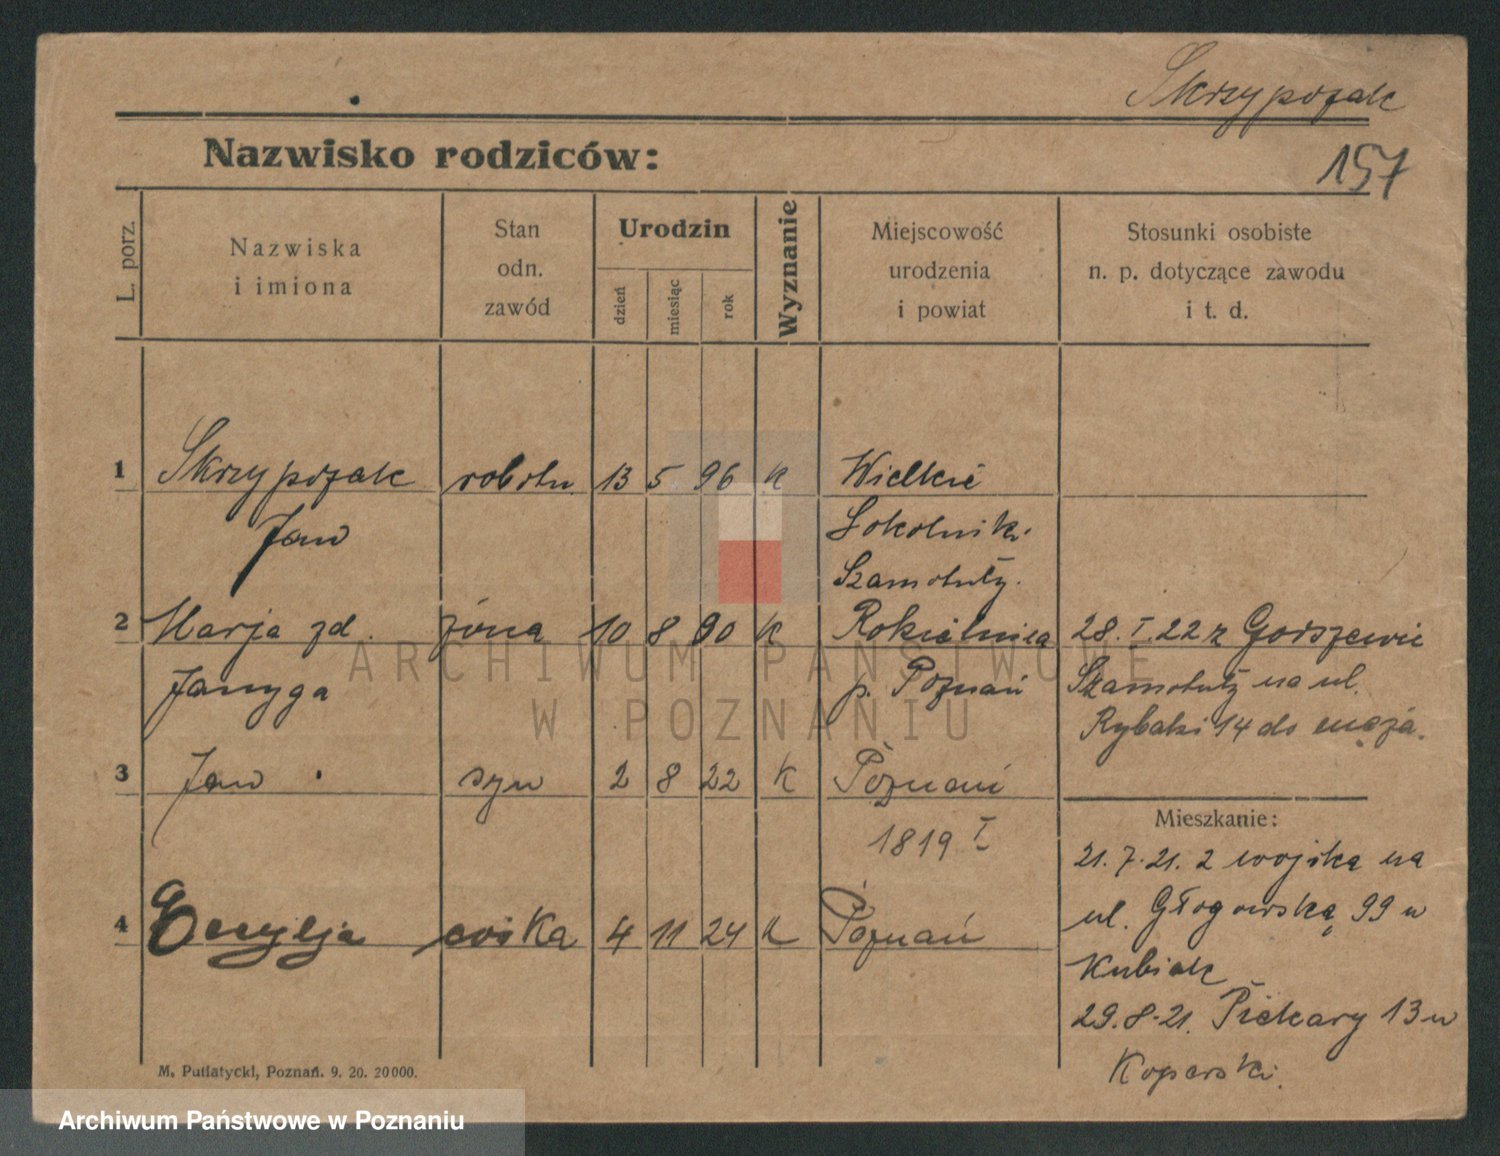 Skrzypczak
Nazwisko rodziców:
157
L. porz.
Nazwiska
i imiona
Stan
odn.
zawód
Urodzin
dzień
miesiąc
rok
Wyznanie
Miejscowość
urodzenia
i powiat
Stosunki osobiste
n. p. dotyczące zawodu
i t. d.
1 Skrzypczak robotn. 13 5 96 k Wielkie
Jan Sokolniki
Szamotuły.
2 Marja zd. żona 10 8 90 k Rokietnica 28. I. 22 z Gorszewic
Janyga p. Poznań Szamotuły na ul.
Rybaki 14 do męża.
3 Jan syn 2 8 22 k Poznań
Mieszkanie:
1819 I
21. 7. 21. z wojska na
4 córka 4 11 24 k Poznań ul. Głogowską 99 u
Kubiak
29. 8. 21. Piekary 13 u
Koperski.
M. Putiatycki, Poznań. 9. 20. 20000.
ARCHIWUM PAŃSTWOWE
W POZNANIU
Archiwum Państwowe w Poznaniu